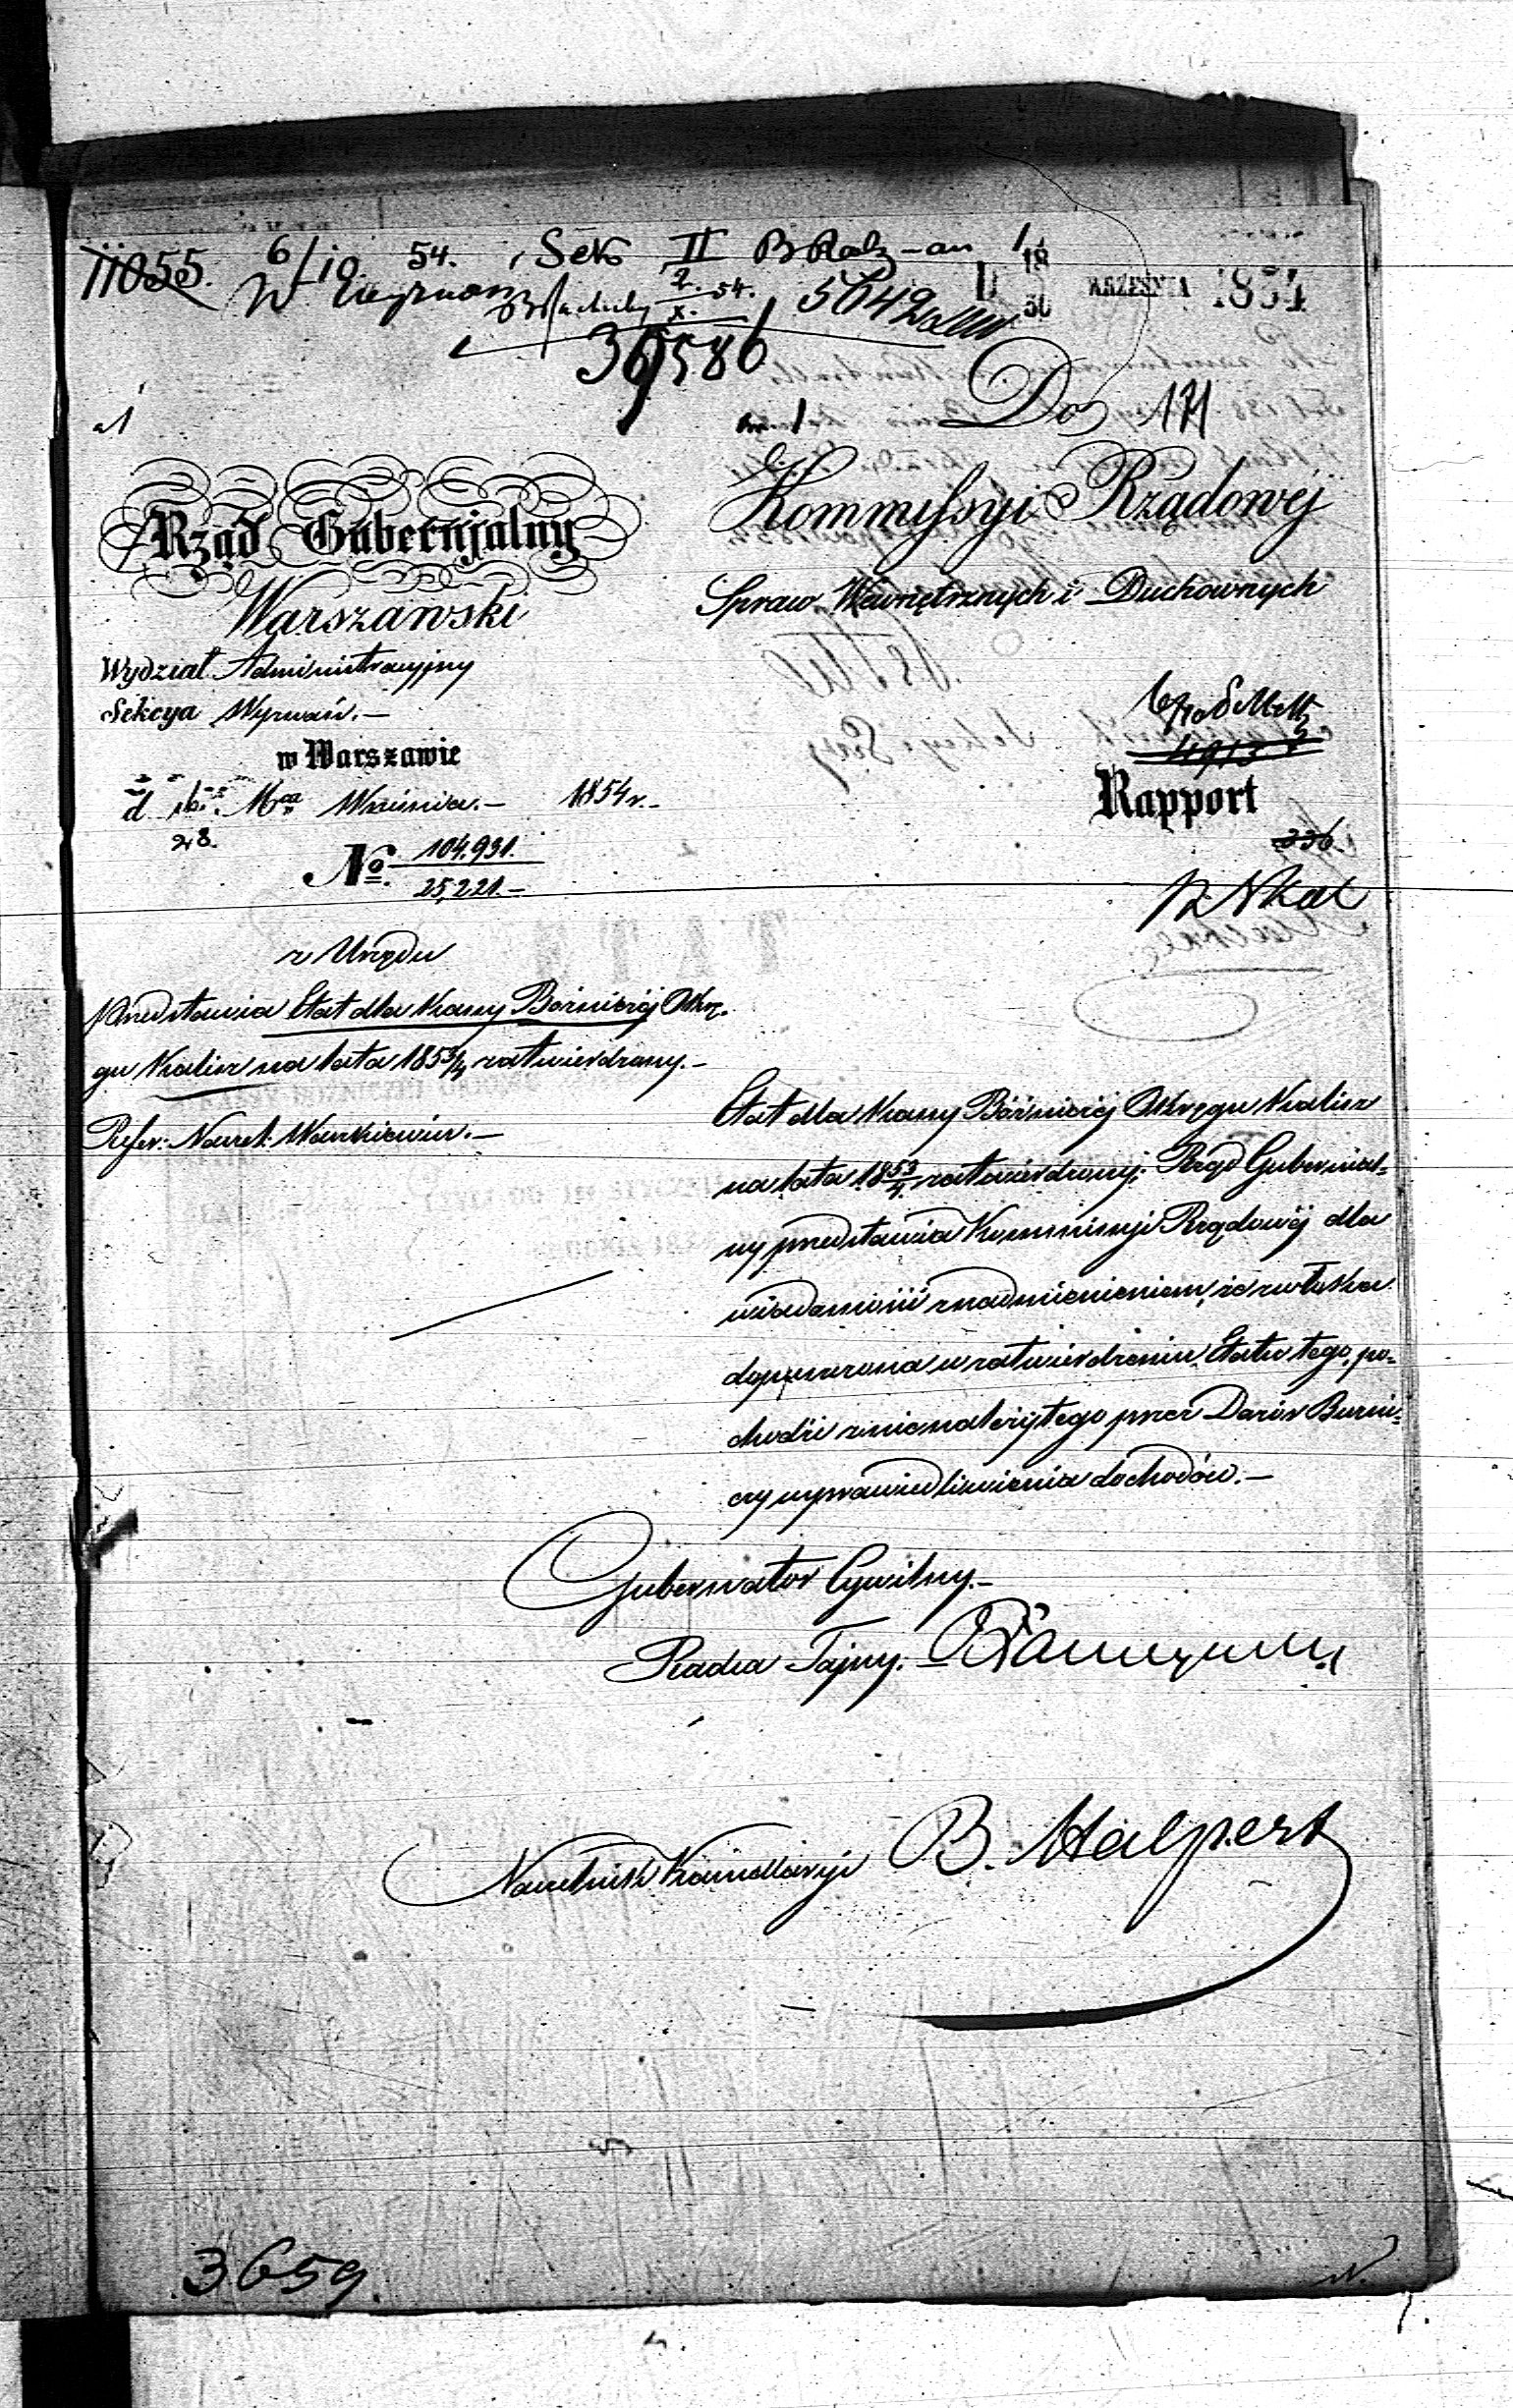 11055. 6/10 54. Sek II
2. 54. 5649
X.
D 18/30 WRZEŚNIA 1854
36586
Do 171
Kommissyi Rządowéj
Spraw Wewnętrznych i Duchownych
Rząd Gubernjalny
Warszawski
Wydział Administracyjny
Sekcya Wyznań.—
w Warszawie
d. 16/28. Mca Września.— 1854 r.
No. 104,931.
25,221.—
4913
Rapport
336
z Urzędu
Przedstawia Etat dla Kassy Bóżniczéj Okrę-
gu Kalisz na lata 1853/4 zatwierdzony.—
Refer: Naczel:
Etat dla Kassy Bóżniczéj Okręgu Kalisz
na lata 1853/4 zatwierdzony, Rząd Gubernial-
ny przedstawia Kommissyi Rządowéj dla
wiadomości z nadmienieniem, że zwłoka
dopuszczona w zatwierdzeniu Etatu tego, po-
chodzi z nienależytego przez Dozór Bożni-
czy usprawiedliwienia dochodów.—
Gubernator Cywilny.—
Radca Tajny.
Naczelnik Kancellaryi B. Halpert
3659.